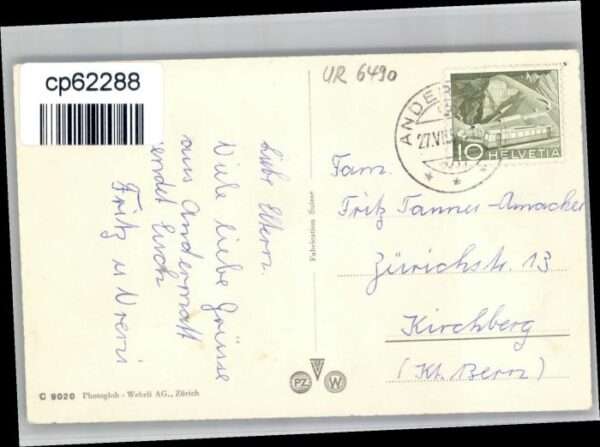 cp62288
UR 6490
ANDER
27.VII
10 HELVETIA
Liebe Eltern.
Viele liebe Grüsse
aus Andermatt
sendet Euch
Fritz u Vreni
Fabrication Suisse
Fam.
Fritz Tanner-Amacher
Zürichstr. 13
Kirchberg
(Kt. Bern)
PZ W
C 9020 Photoglob - Wehrli AG., Zürich